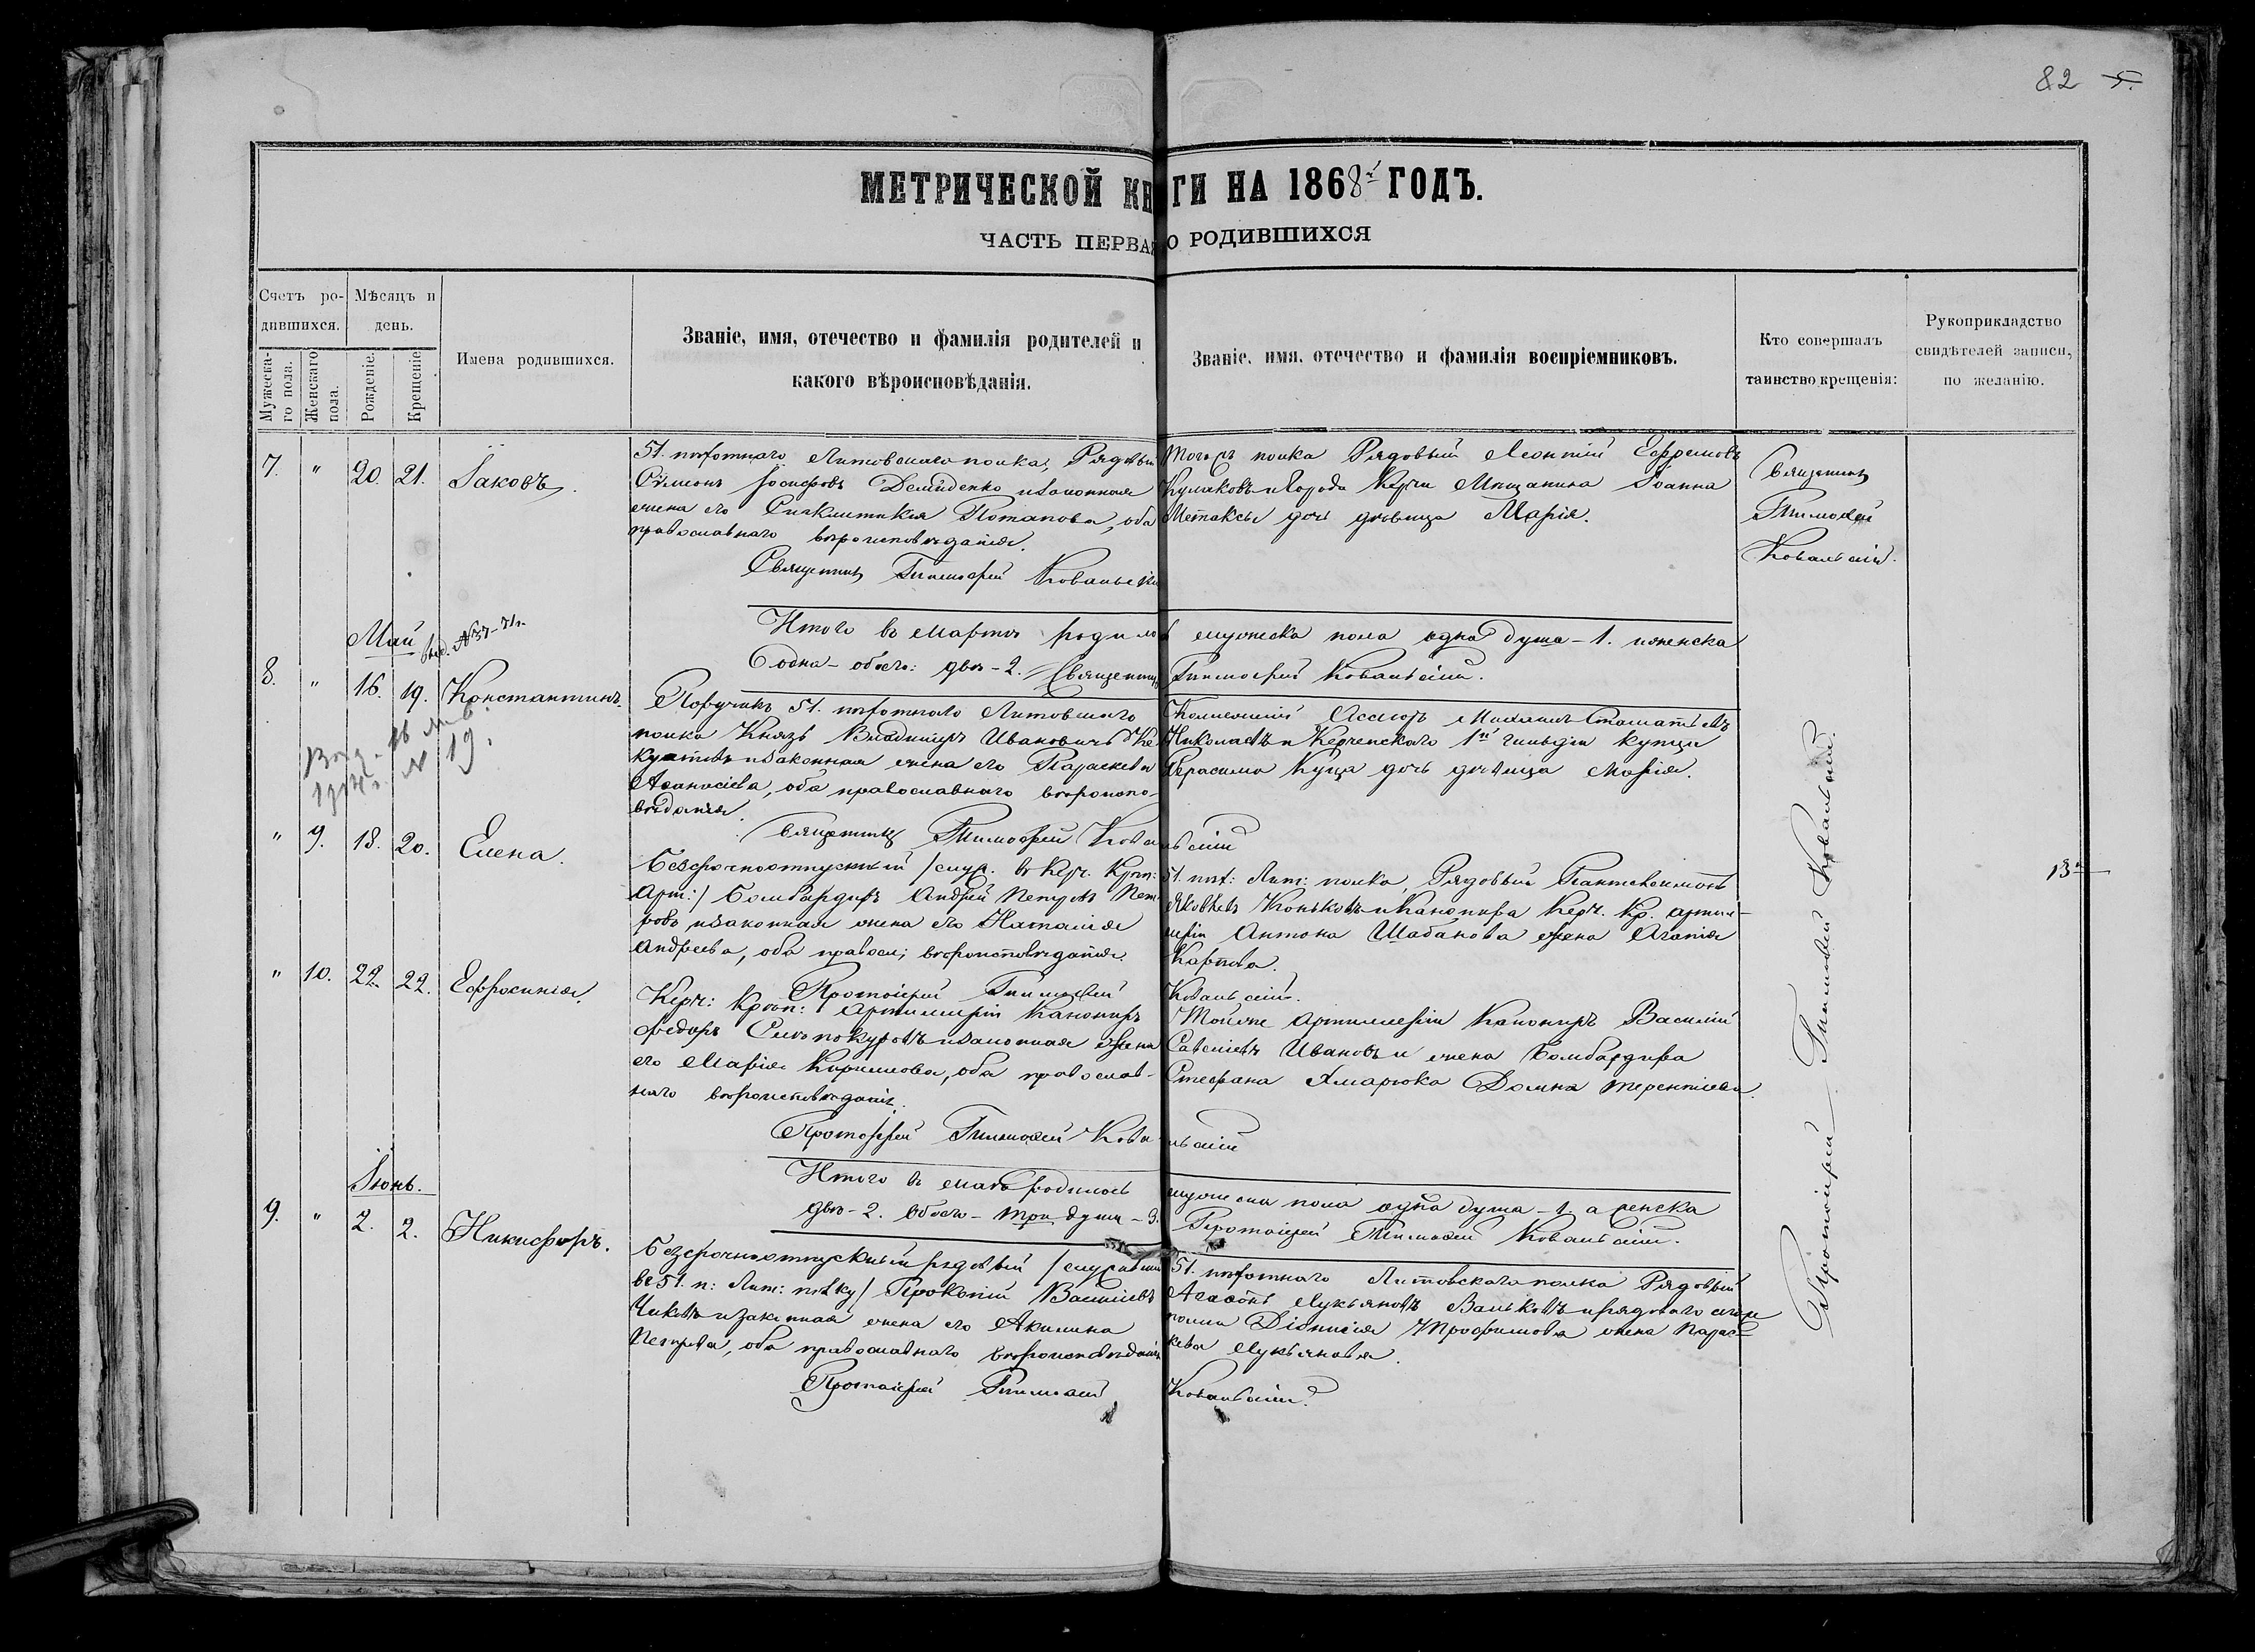 82 5.
МЕТРИЧЕСКОЙ КНИГИ НА 1868й ГОДЪ.
ЧАСТЬ ПЕРВАЯ О РОДИВШИХСЯ
Счетъ ро-
дившихся.
Мужеска-
го пола.
Женскаго
пола.
Мѣсяцъ и
день.
Рожденіе.
Крещеніе
Имена родившихся.
Званіе, имя, отечество и фамилія родителей и
какого вѣроисповѣданія.
Званіе, имя, отечество и фамилія воспріемниковъ.
Кто совершалъ
таинство крещенія:
Рукоприкладство
свидѣтелей записи,
по желанію.
7. " 20. 21. Іаковъ.
51. пѣхотнаго Литовскаго полка, Рядовый
Сѵмеонъ Іосифовъ Демиденко и законная
жена его Синклитикія Потапова, оба
православнаго вѣроисповѣданія.
Священникъ Тимофей Ковальскій
Тогожъ полка Рядовый Леонтій Ефремовъ
Кулаковъ и Города Керчи Мѣщанина Іоанна
Метаксы дочь дѣвица Марія.
Священникъ
Тимоѳей
Ковальскій.
Итого въ Мартѣ родилось мужеска пола одна душа - 1. и женска
одна - обоего: двѣ - 2. Священникъ Тимофей Ковальскій.
Май
8. " 16. 19. Константинъ.
№ 19.
Поручикъ 51. пѣхотнаго Литовскаго
полка Князь Владимиръ Ивановичъ
и законная жена его Параскева
Аѳанасіева, оба православнаго вѣроиспо-
вѣданія.
Священникъ Тимофей Ковальскій
Ассесоръ Михаилъ
Николаевъ и Керченскаго 1й гильдіи купца
Герасима Куца дочь дѣвица Марія.
" 9. 18. 20. Елена.
Безсрочноотпускный /служ. въ Керч. Крѣп:
Арт:/ Бомбардиръ Андрей Петровъ Пет-
ровъ и законная жена его Наталія
Андреева, оба правосл; вѣроисповѣданія.
Протоіерей Тимоѳей Ковальскій.
51. пѣх: Лит: полка, Рядовый Пантелеимонъ
Яковлевъ Коньковъ и Канонира Керч. Кр. артил-
леріи Антона Шабанова жена Агапія
Карпова.
" 10. 22. 22. Ефросинія.
Керч: Крѣп: Артиллеріи Канониръ
Федоръ и законная жена
его Марія Кириллова, оба православ-
наго вѣроисповѣданія.
Протоіерей Тимоѳей Ковальскій
Тойже Артиллеріи Канониръ Василій
Савельевъ Ивановъ и жена Бомбардира
Стефана Хмарюка Домна Терентіева.
Итого въ Маѣ родилось мужеска пола одна душа - 1. а женска
двѣ - 2. Обоего - три души - 3. Протоіерей Тимоѳей Ковальскій.
Іюнь.
9. " 2. 2. Никифоръ.
Безсрочноотпускный рядовый /служивший
въ 51. п: Лит: полку/ Прокопій Василіевъ
и законная жена его Акилина
Петрова, оба православнаго вѣроисповѣданія
Протоіерей Тимоѳей Ковальскій.
51. пѣхотнаго Литовскаго полка Рядовый
Агаѳонъ Лукьяновъ Вальковъ и рядоваго сего же
полка Діонисія Трофимова жена Парас-
кева Лукьянова.
Протоіерей Тимоѳей Ковальскій.